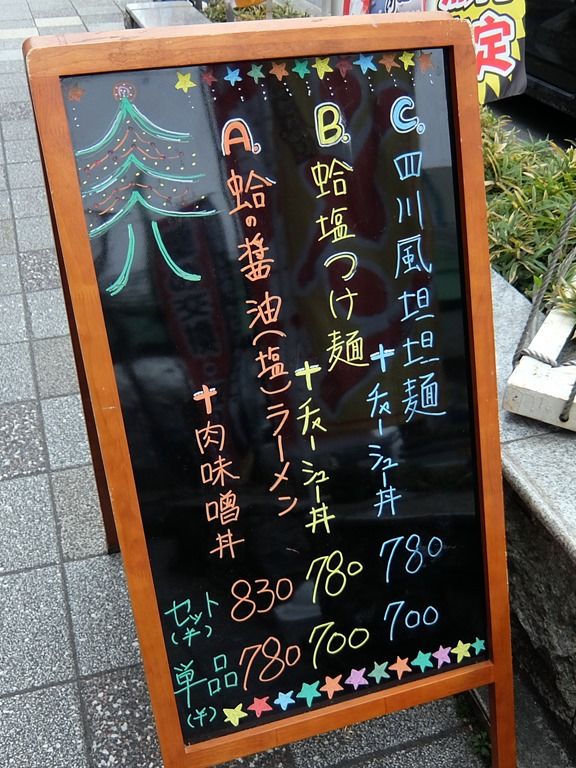 A.
蛤の醤油(塩)ラーメン
+肉味噌丼
B.
蛤塩つけ麺
+チャーシュー丼
C.
四川風坦坦麺
+チャーシュー丼
セット(¥) 830 780 780
単品(¥) 780 700 700
定